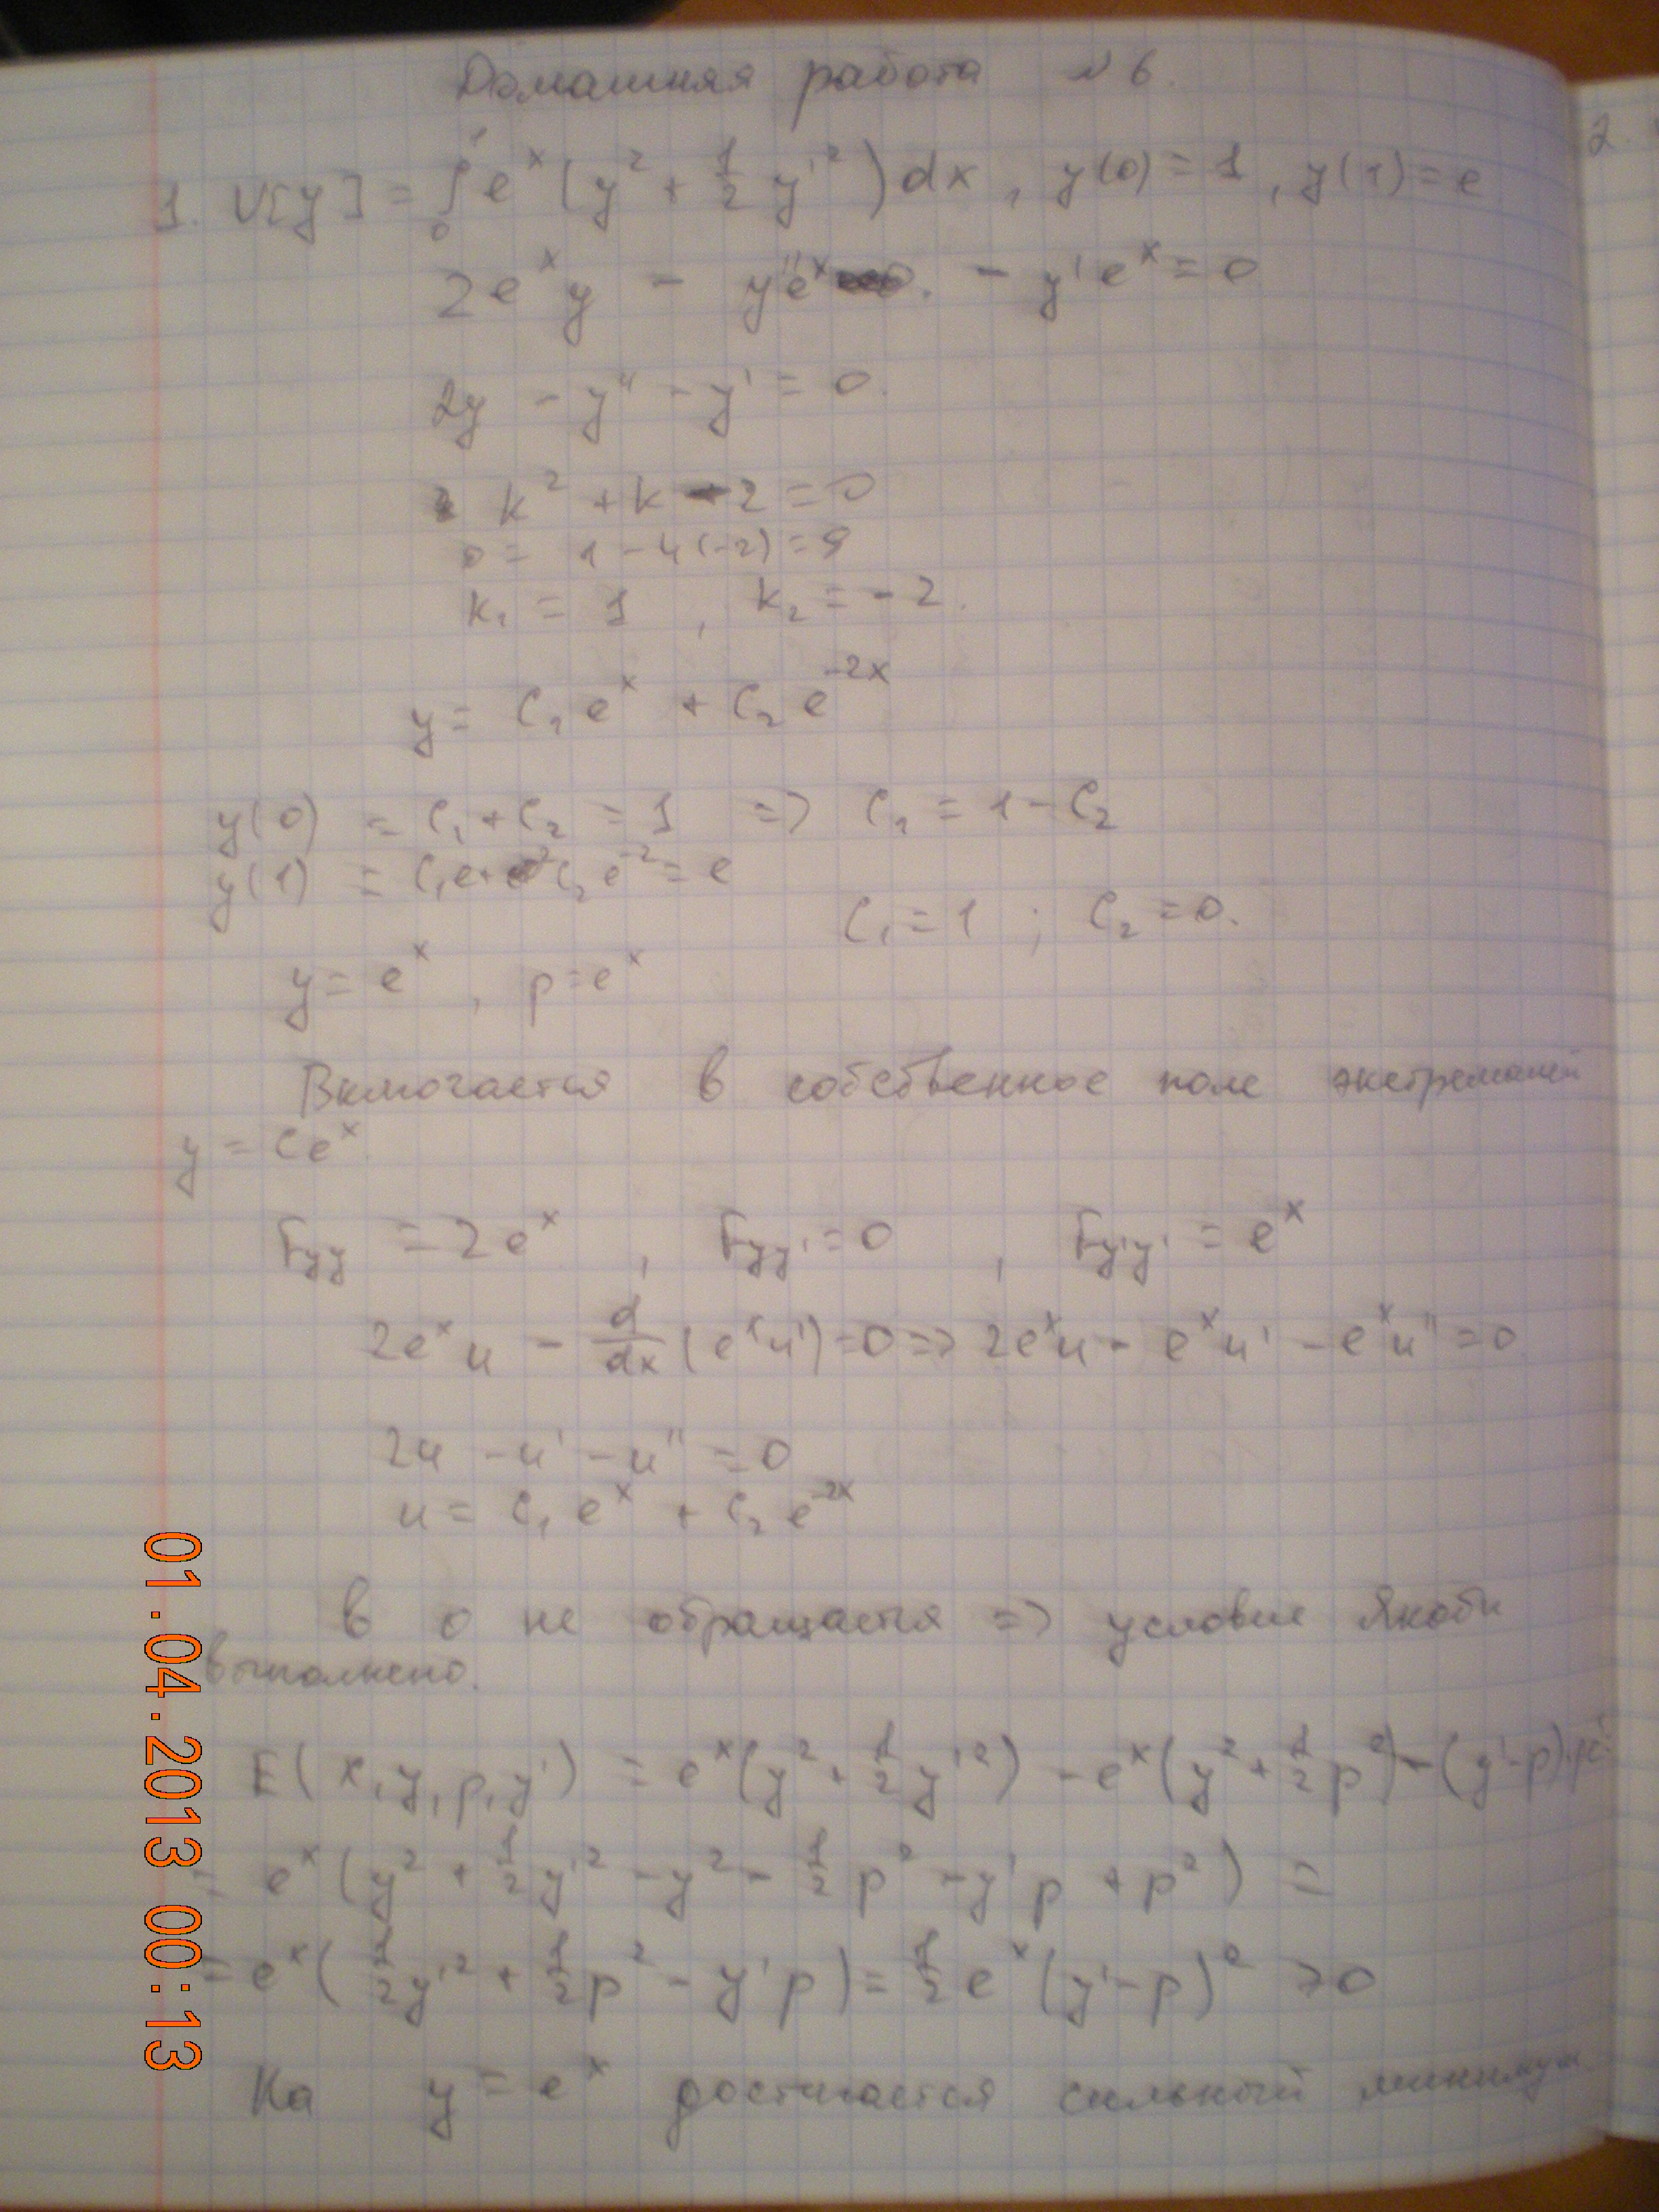 Домашняя работа №6.
1. V[y] = ∫₀¹ eˣ(y² + 1/2 y'²)dx, y(0)=1, y(1)=e
2eˣy - y''eˣ - y'eˣ = 0
2y - y'' - y' = 0.
k² + k - 2 = 0
D = 1-4(-2)=9
k₁ = 1, k₂ = -2.
y = C₁eˣ + C₂e⁻²ˣ
y(0) = C₁+C₂ = 1 => C₁ = 1-C₂
y(1) = C₁e+C₂e⁻²=e
C₁=1; C₂=0.
y=eˣ, p=eˣ
Включается в собственное поле экстремалей
y = Ceˣ
Fyy = 2eˣ, Fyy' = 0, Fy'y' = eˣ
2eˣu - d/dx(eˣu')=0 => 2eˣu - eˣu' - eˣu'' = 0
2u - u' - u'' = 0
u = C₁eˣ + C₂e⁻²ˣ
в 0 не обращается => условие Якоби
выполнено.
E(x,y,p,y') = eˣ(y² + 1/2 y'²) - eˣ(y² + 1/2 p²) - (y'-p)
= eˣ(y² + 1/2 y'² - y² - 1/2 p² - y'p + p²) =
= eˣ(1/2 y'² + 1/2 p² - y'p) = 1/2 eˣ(y'-p)² >0
На y = eˣ достигается сильный минимум
2.
01.04.2013 00:13